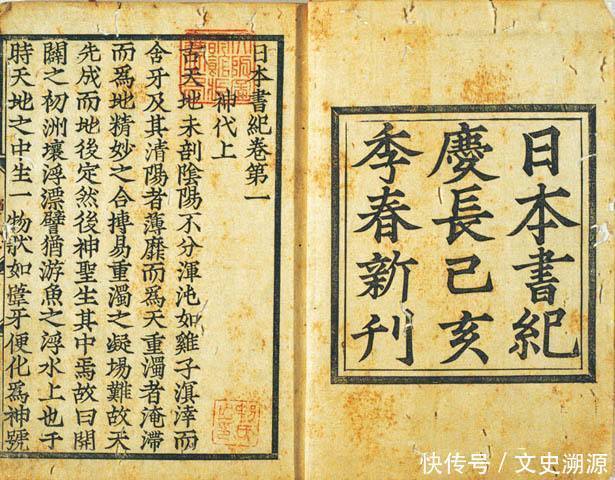 日本書紀
慶長己亥
季春新刊
日本書紀卷第一
神代上
古天地未剖陰陽不分渾沌如雞子溟涬而
含牙及其清陽者薄靡而爲天重濁者淹滯
而爲地精妙之合摶易重濁之凝場難故天
先成而地後定然後神聖生其中焉故曰開
闢之初洲壤浮漂譬猶游魚之浮水上也于
時天地之中生一物狀如葦牙便化爲神號
快传号 / 文史溯源